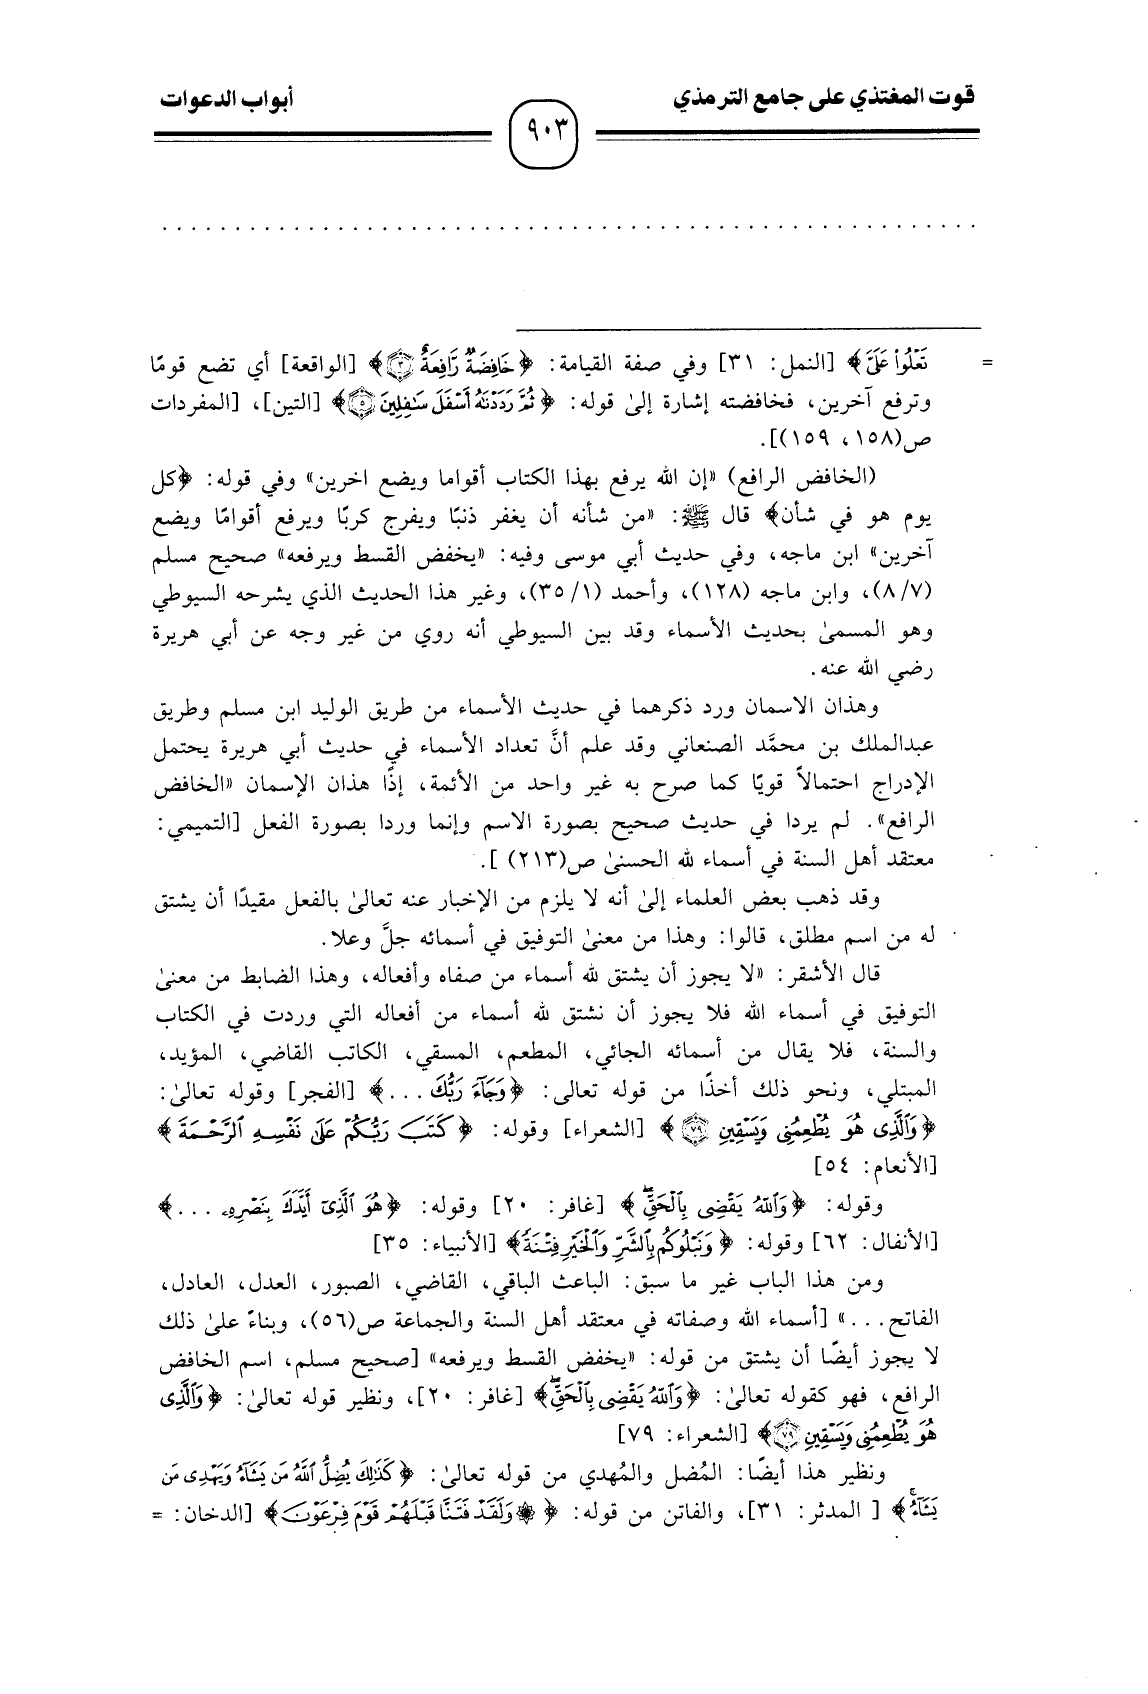 قوت المغتذي على جامع الترمذي
أبواب الدعوات
٩٠٣
. . . . . . . . . . . . . . . . . . . . . . . . . . . . . . . . . . . . . . . . . . . . . . . . . . . . . .
= تَعْلُوا۟ عَلَىَّ﴾ [النمل: ٣١] وفي صفة القيامة: ﴿خَافِضَةٌ رَّافِعَةٌ ٣﴾ [الواقعة] أي تضع قومًا
وترفع آخرين، فخافضته إشارة إلىٰ قوله: ﴿ثُمَّ رَدَدْنَٰهُ أَسْفَلَ سَٰفِلِينَ ٥﴾ [التين]، [المفردات
ص(١٥٨، ١٥٩)].
(الخافض الرافع) «إن الله يرفع بهذا الكتاب أقواما ويضع اخرين» وفي قوله: ﴿كل
يوم هو في شأن﴾ قال ﷺ: «من شأنه أن يغفر ذنبًا ويفرج كربًا ويرفع أقوامًا ويضع
آخرين» ابن ماجه، وفي حديث أبي موسى وفيه: «يخفض القسط ويرفعه» صحيح مسلم
(٨/٧)، وابن ماجه (١٢٨)، وأحمد (٣٥/١)، وغير هذا الحديث الذي يشرحه السيوطي
وهو المسمىٰ بحديث الأسماء وقد بين السيوطي أنه روي من غير وجه عن أبي هريرة
رضي الله عنه.
وهذان الاسمان ورد ذكرهما في حديث الأسماء من طريق الوليد ابن مسلم وطريق
عبدالملك بن محمَّد الصنعاني وقد علم أنَّ تعداد الأسماء في حديث أبي هريرة يحتمل
الإدراج احتمالاً قويًا كما صرح به غير واحد من الأئمة، إذًا هذان الإسمان «الخافض
الرافع». لم يردا في حديث صحيح بصورة الاسم وإنما وردا بصورة الفعل [التميمي:
معتقد أهل السنة في أسماء لله الحسنىٰ ص(٢١٣) ].
وقد ذهب بعض العلماء إلىٰ أنه لا يلزم من الإخبار عنه تعالىٰ بالفعل مقيدًا أن يشتق
له من اسم مطلق، قالوا: وهذا من معنىٰ التوفيق في أسمائه جلَّ وعلا.
قال الأشقر: «لا يجوز أن يشتق لله أسماء من صفاه وأفعاله، وهذا الضابط من معنىٰ
التوفيق في أسماء الله فلا يجوز أن نشتق لله أسماء من أفعاله التي وردت في الكتاب
والسنة، فلا يقال من أسمائه الجائي، المطعم، المسقي، الكاتب القاضي، المؤيد،
المبتلي، ونحو ذلك أخذًا من قوله تعالى: ﴿وَجَآءَ رَبُّكَ ...﴾ [الفجر] وقوله تعالىٰ:
﴿وَٱلَّذِى هُوَ يُطْعِمُنِى وَيَسْقِينِ ٧٩﴾ [الشعراء] وقوله: ﴿كَتَبَ رَبُّكُمْ عَلَىٰ نَفْسِهِ ٱلرَّحْمَةَ﴾
[الأنعام: ٥٤]
وقوله: ﴿وَٱللَّهُ يَقْضِى بِٱلْحَقِّۖ﴾ [غافر: ٢٠] وقوله: ﴿هُوَ ٱلَّذِىٓ أَيَّدَكَ بِنَصْرِهِۦ ...﴾
[الأنفال: ٦٢] وقوله: ﴿وَنَبْلُوكُم بِٱلشَّرِّ وَٱلْخَيْرِ فِتْنَةً﴾ [الأنبياء: ٣٥]
ومن هذا الباب غير ما سبق: الباعث الباقي، القاضي، الصبور، العدل، العادل،
الفاتح...» [أسماء الله وصفاته في معتقد أهل السنة والجماعة ص(٥٦)، وبناءً علىٰ ذلك
لا يجوز أيضًا أن يشتق من قوله: «يخفض القسط ويرفعه» [صحيح مسلم، اسم الخافض
الرافع، فهو كقوله تعالىٰ: ﴿وَٱللَّهُ يَقْضِى بِٱلْحَقِّۖ﴾ [غافر: ٢٠]، ونظير قوله تعالىٰ: ﴿وَٱلَّذِى
هُوَ يُطْعِمُنِى وَيَسْقِينِ ٧٩﴾ [الشعراء: ٧٩]
ونظير هذا أيضًا: المُضل والمُهدي من قوله تعالىٰ: ﴿كَذَٰلِكَ يُضِلُّ ٱللَّهُ مَن يَشَآءُ وَيَهْدِى مَن
يَشَآءُۚ﴾ [ المدثر: ٣١]، والفاتن من قوله: ﴿۞ وَلَقَدْ فَتَنَّا قَبْلَهُمْ قَوْمَ فِرْعَوْنَ﴾ [الدخان: =